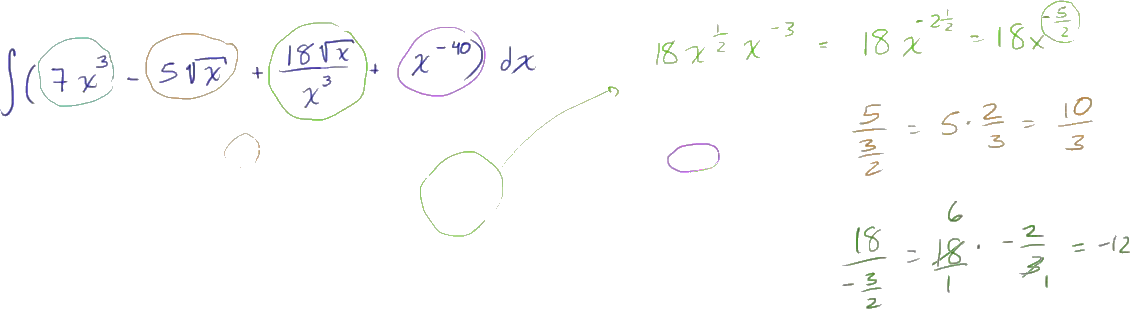 ∫(7x³ - 5√x + 18√x/x³ + x⁻⁴⁰) dx
18 x^{1/2} x^{-3} = 18 x^{-2 1/2} = 18x^{-5/2}
5/(3/2) = 5 · 2/3 = 10/3
18/(-3/2) = 18/1 · -2/3 = -12
6
1